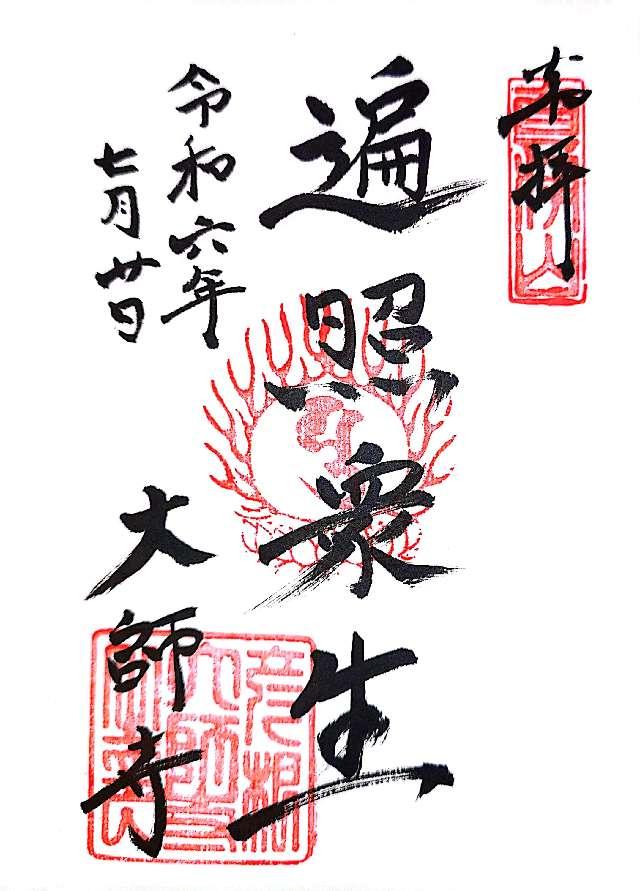 奉拝
遍照衆生
令和六年
七月廿日
大師寺